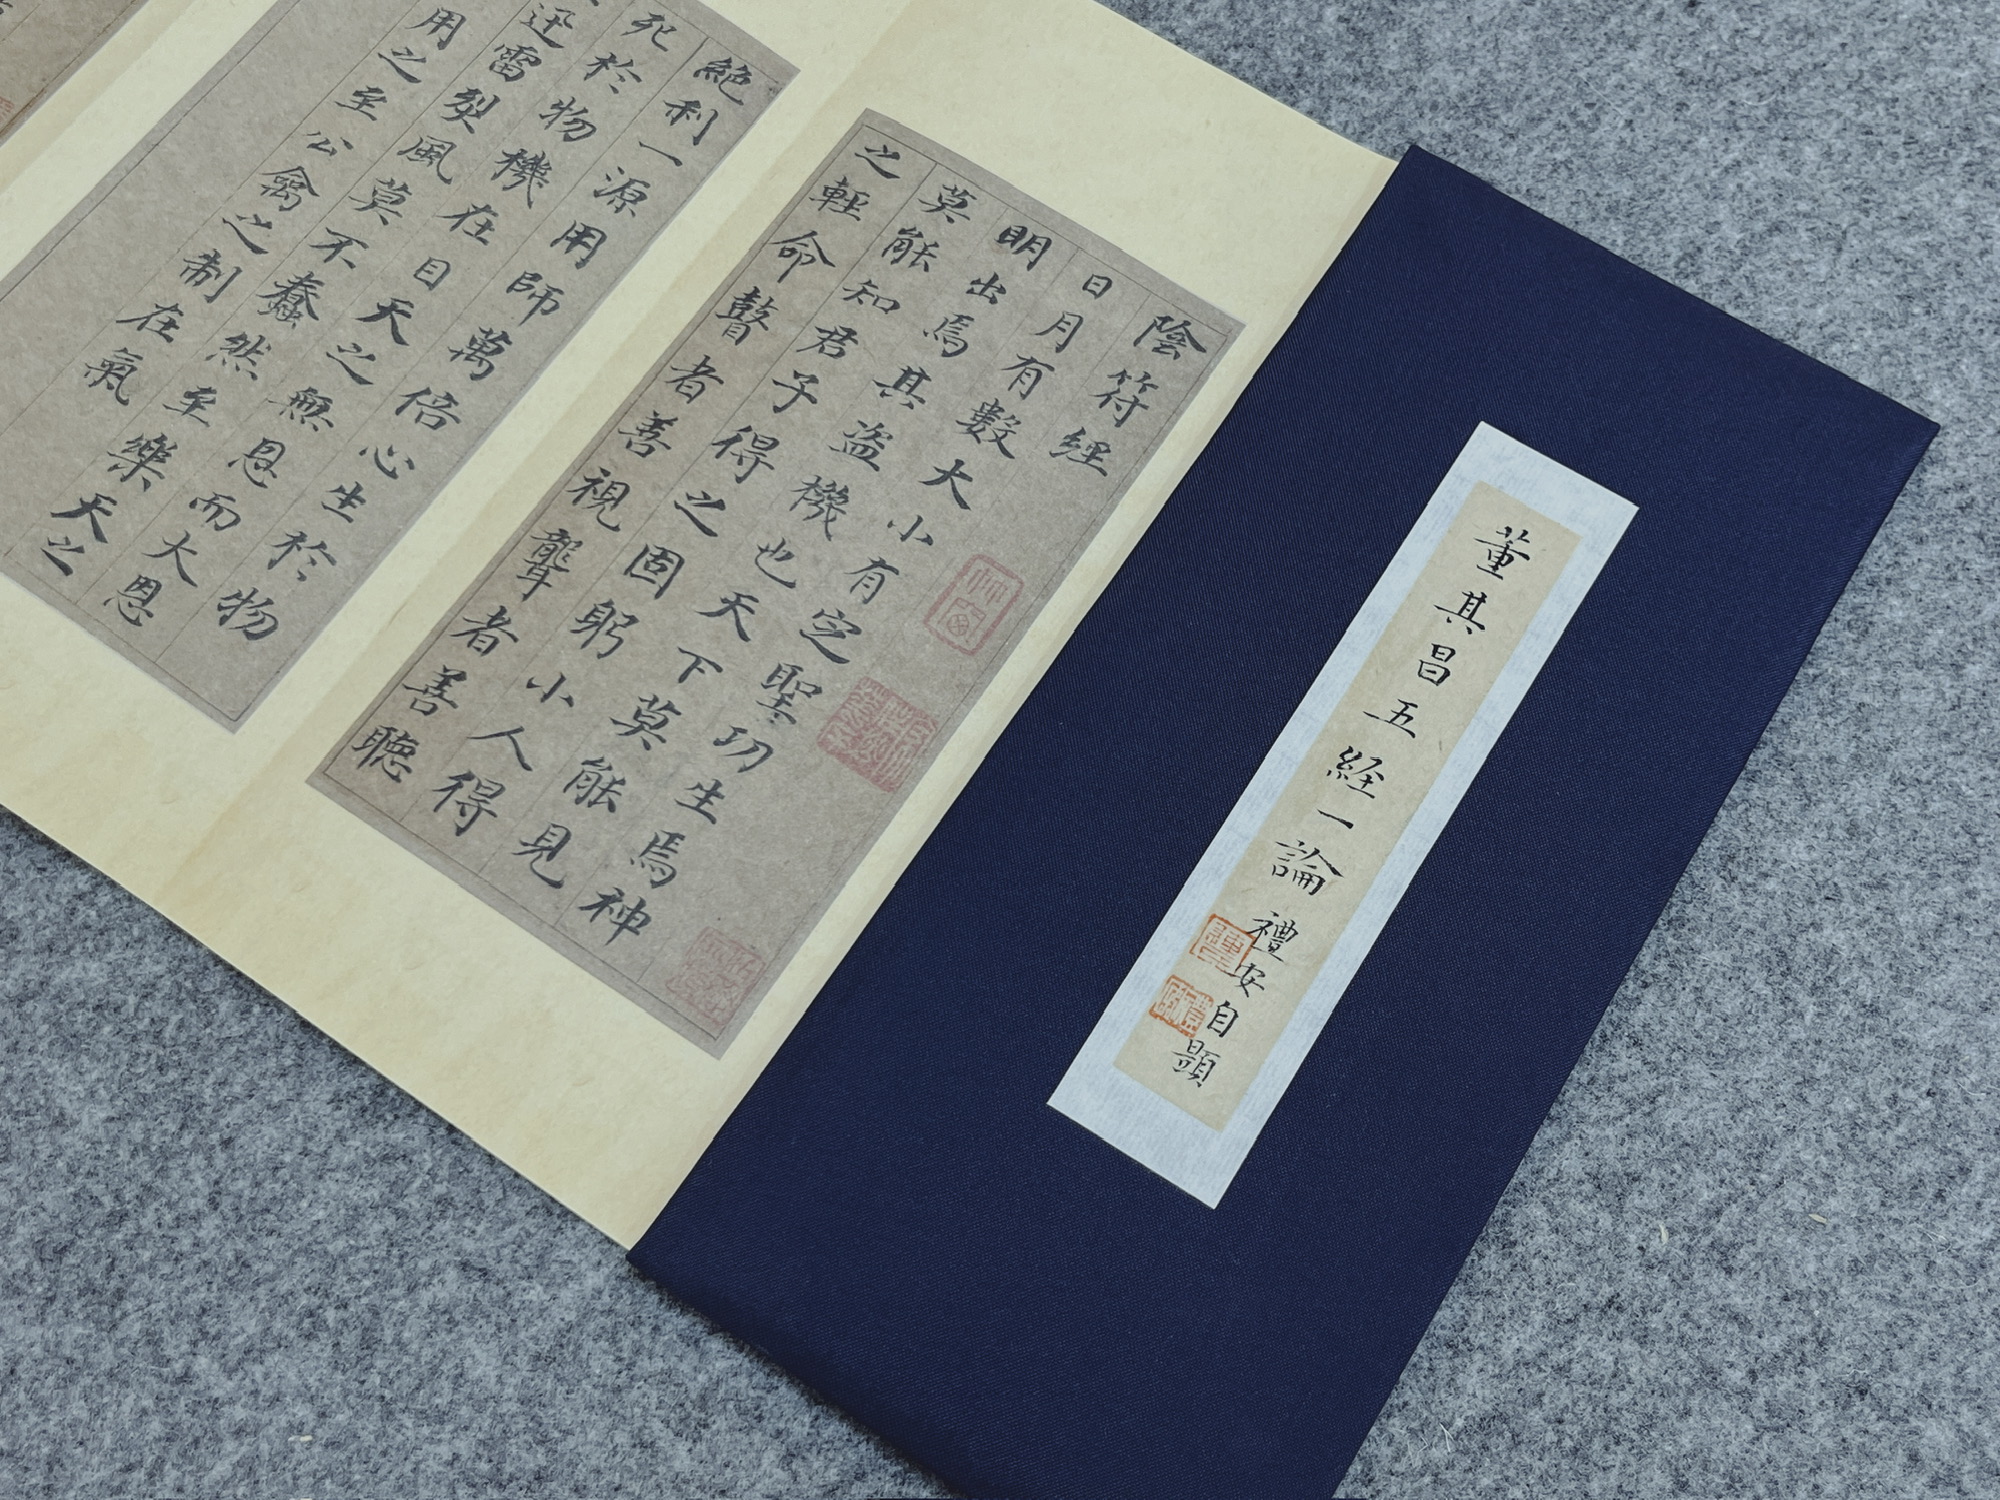 董其昌五経一論 禮安自題
陰符經
日月有數大小有定聖功生焉神
明出焉其盗機也天下莫能見
莫能知君子得之固躬小人得
之輕命瞽者善視聾者善聽
絶利一源用師萬倍心生於物
死於物機在目天之無恩而大恩
迅雷烈風莫不蠢然至樂天之
用之至公禽之制在氣